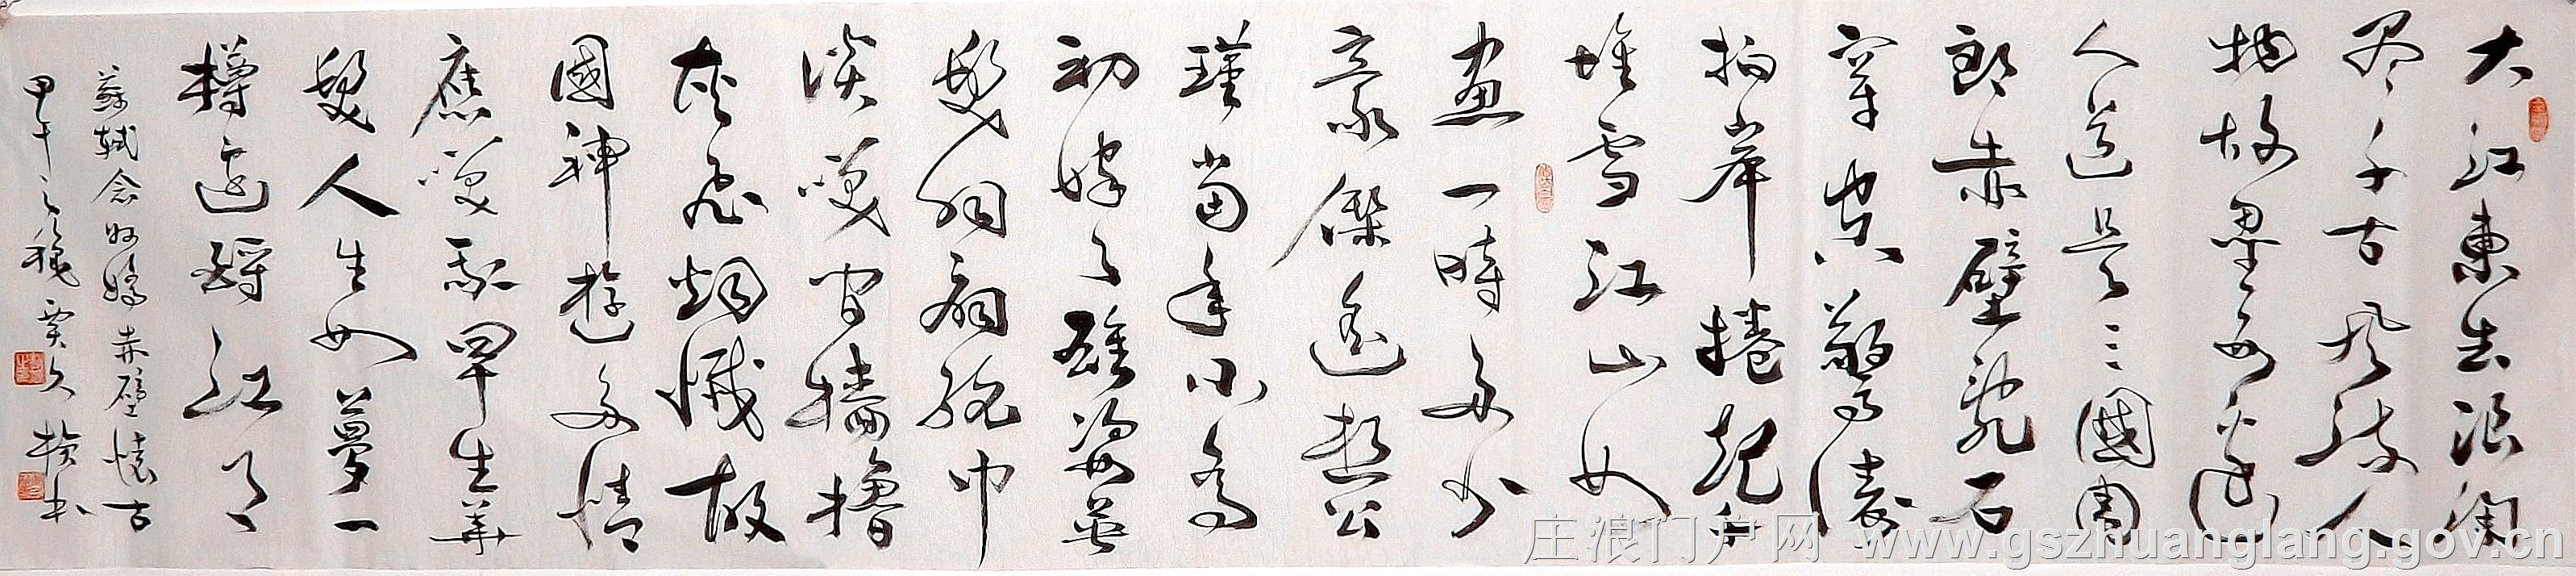 大江東去浪淘
尽千古风流人
物故垒西边
人道是三國周
郎赤壁亂石
穿空驚濤
拍岸捲起千
堆雪江山如
畫一時多少
豪傑遙想公
瑾當年小喬
初嫁了雄姿英
發羽扇綸巾
談笑間檣櫓
灰飛烟滅故
國神遊多情
應笑我早生華
髮人生如夢一
樽還酹江月
蘇軾念奴嬌赤壁懷古
甲午之秋贾久 书
庄浪门户网 www.gszhuanglang.gov.cn